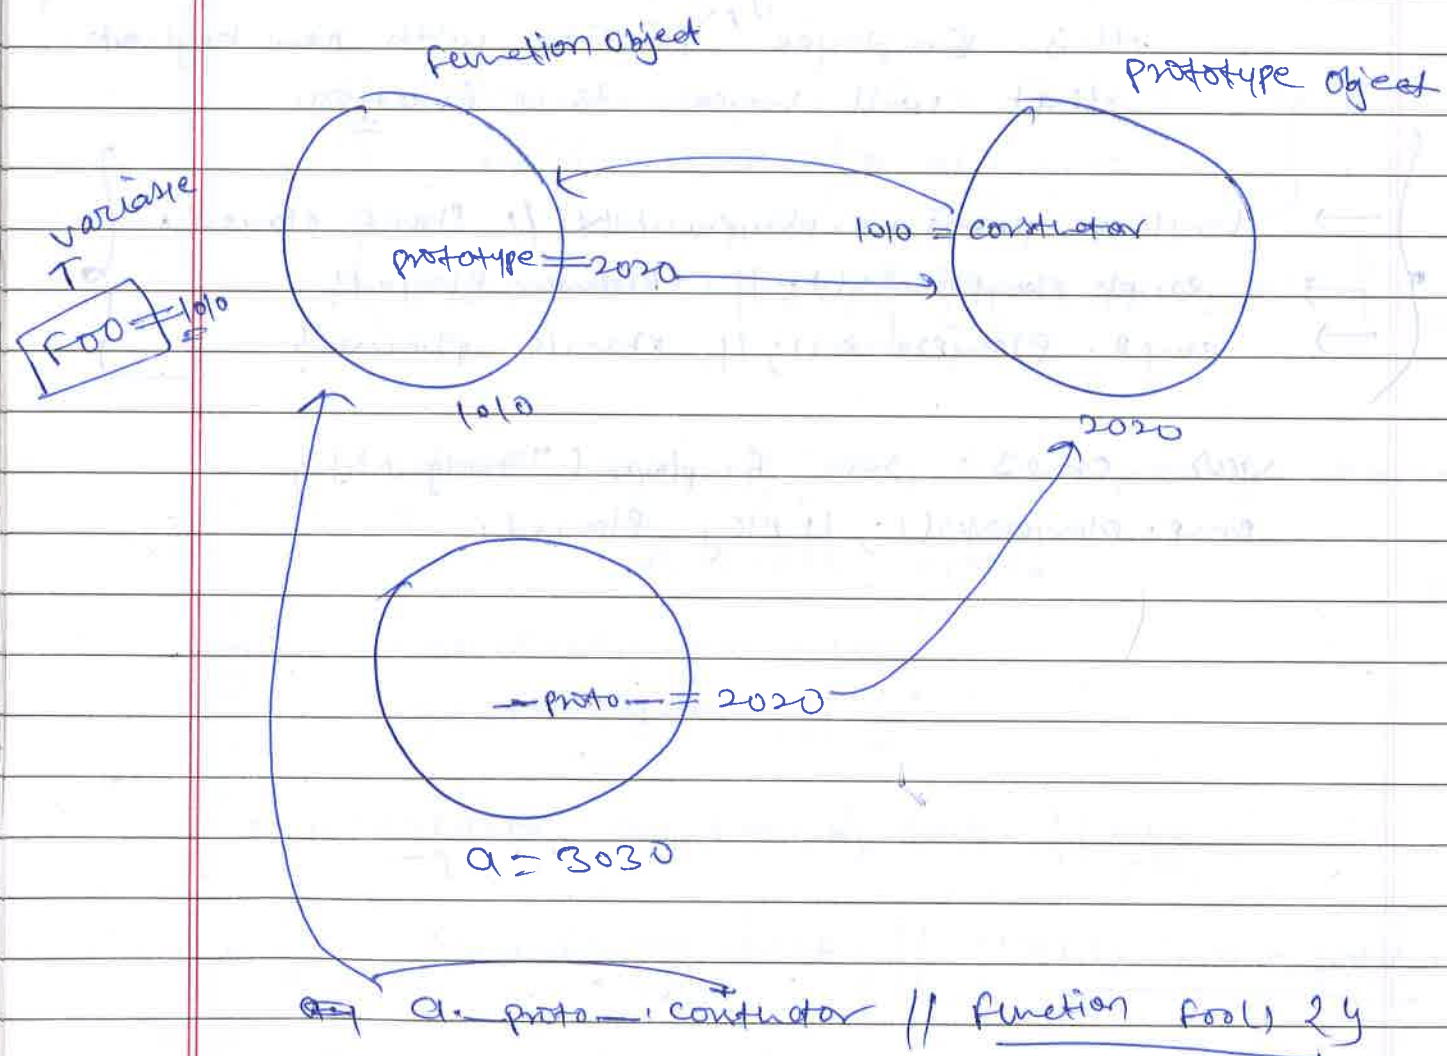 function object
prototype object
variable
Foo = 1010
prototype = 2020
1010 = constructor
1010
2020
__proto__ = 2020
a = 3030
a.__proto__.constructor // function foo() {}